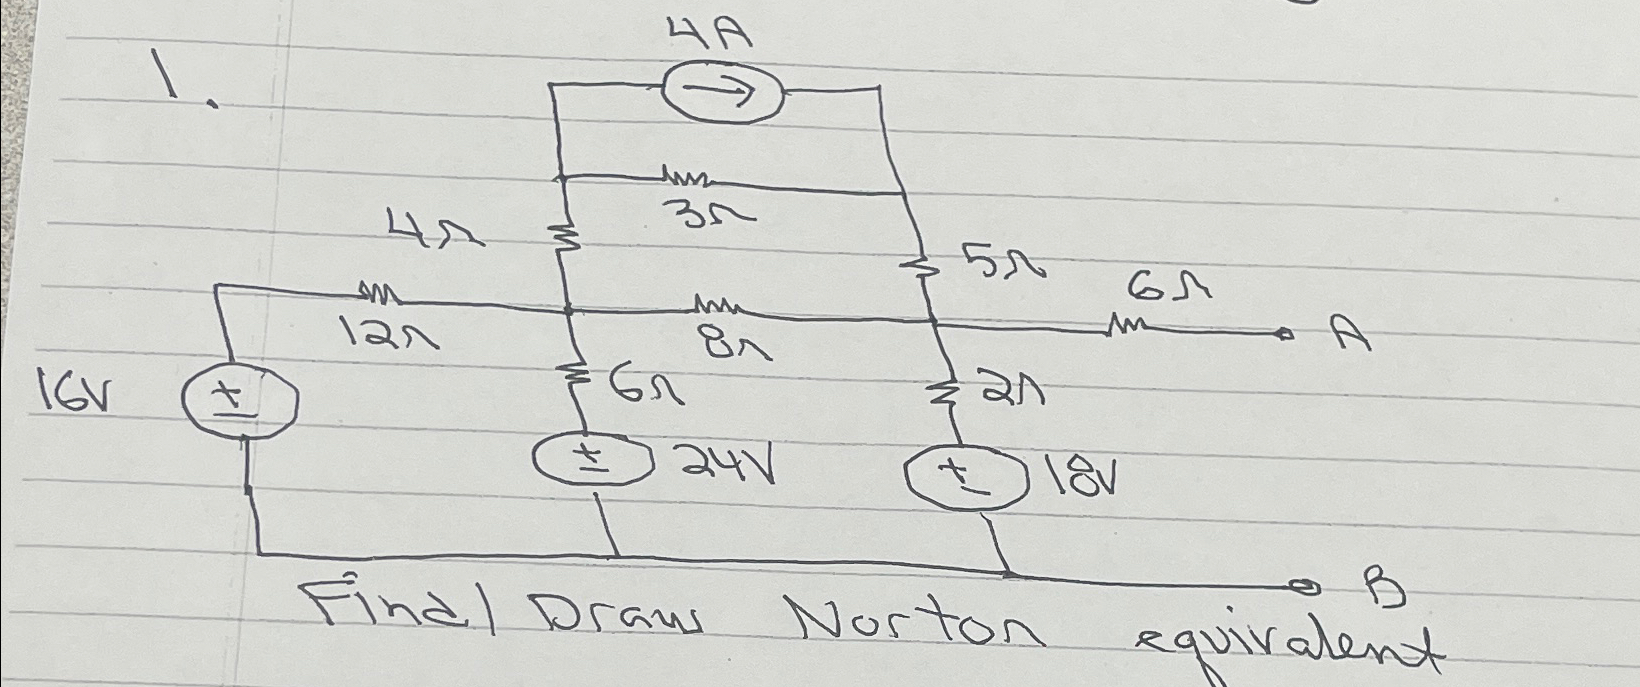 4A
1.
3Ω
4Ω
5Ω
6Ω
12Ω
8Ω
A
16V
6Ω
2Ω
24V
18V
B
Find/Draw Norton equivalent